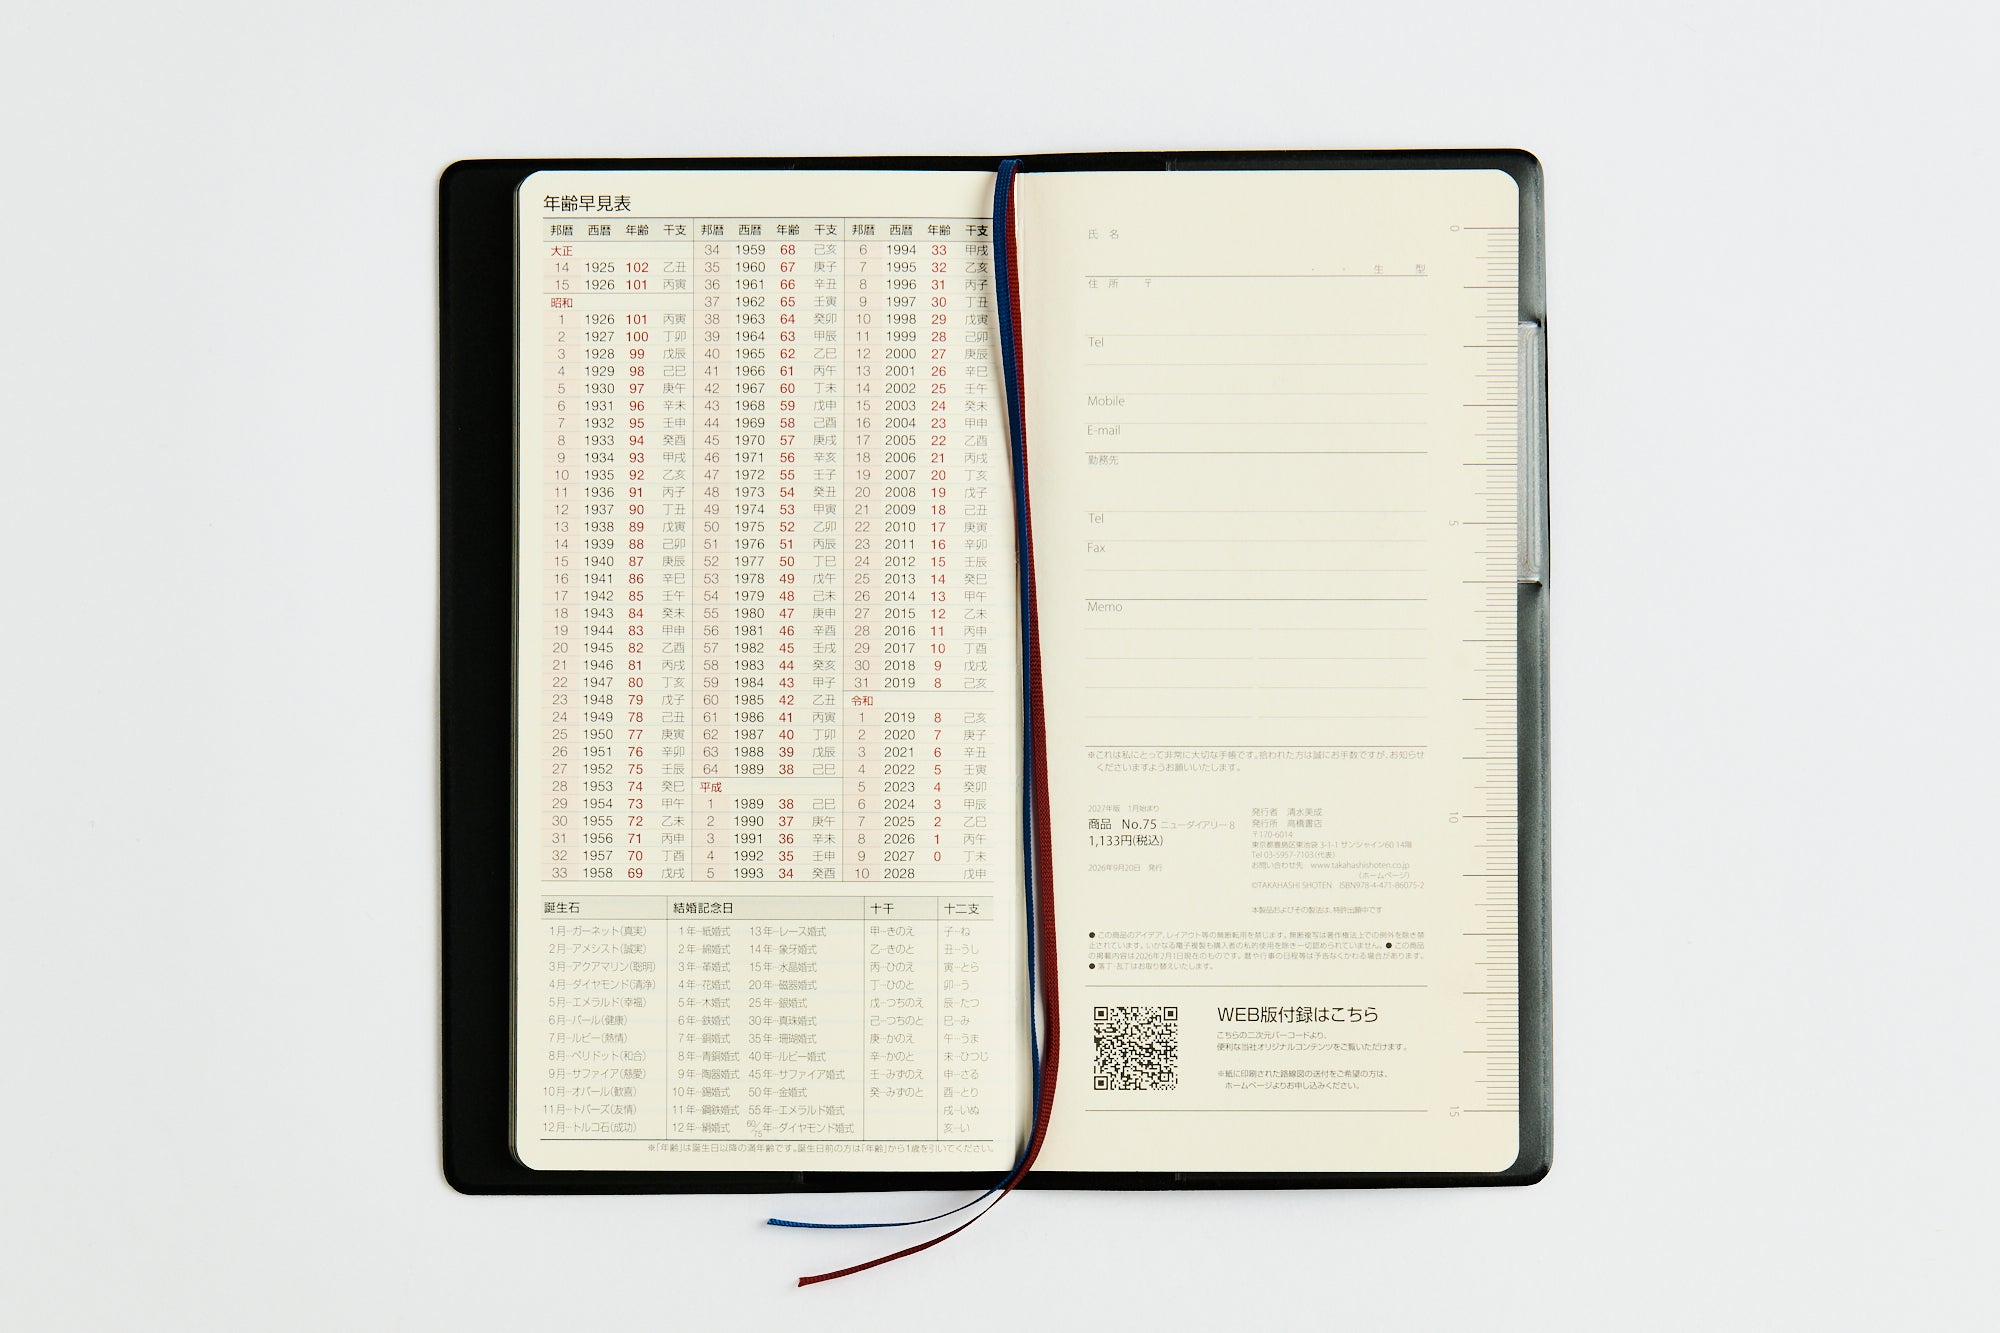 年齢早見表
邦暦 西暦 年齢 干支
大正
14 1925 102 乙丑
15 1926 101 丙寅
昭和
1 1926 101 丙寅
2 1927 100 丁卯
3 1928 99 戊辰
4 1929 98 己巳
5 1930 97 庚午
6 1931 96 辛未
7 1932 95 壬申
8 1933 94 癸酉
9 1934 93 甲戌
10 1935 92 乙亥
11 1936 91 丙子
12 1937 90 丁丑
13 1938 89 戊寅
14 1939 88 己卯
15 1940 87 庚辰
16 1941 86 辛巳
17 1942 85 壬午
18 1943 84 癸未
19 1944 83 甲申
20 1945 82 乙酉
21 1946 81 丙戌
22 1947 80 丁亥
23 1948 79 戊子
24 1949 78 己丑
25 1950 77 庚寅
26 1951 76 辛卯
27 1952 75 壬辰
28 1953 74 癸巳
29 1954 73 甲午
30 1955 72 乙未
31 1956 71 丙申
32 1957 70 丁酉
33 1958 69 戊戌
邦暦 西暦 年齢 干支
34 1959 68 己亥
35 1960 67 庚子
36 1961 66 辛丑
37 1962 65 壬寅
38 1963 64 癸卯
39 1964 63 甲辰
40 1965 62 乙巳
41 1966 61 丙午
42 1967 60 丁未
43 1968 59 戊申
44 1969 58 己酉
45 1970 57 庚戌
46 1971 56 辛亥
47 1972 55 壬子
48 1973 54 癸丑
49 1974 53 甲寅
50 1975 52 乙卯
51 1976 51 丙辰
52 1977 50 丁巳
53 1978 49 戊午
54 1979 48 己未
55 1980 47 庚申
56 1981 46 辛酉
57 1982 45 壬戌
58 1983 44 癸亥
59 1984 43 甲子
60 1985 42 乙丑
61 1986 41 丙寅
62 1987 40 丁卯
63 1988 39 戊辰
64 1989 38 己巳
平成
1 1989 38 己巳
2 1990 37 庚午
3 1991 36 辛未
4 1992 35 壬申
5 1993 34 癸酉
邦暦 西暦 年齢 干支
6 1994 33 甲戌
7 1995 32 乙亥
8 1996 31 丙子
9 1997 30 丁丑
10 1998 29 戊寅
11 1999 28 己卯
12 2000 27 庚辰
13 2001 26 辛巳
14 2002 25 壬午
15 2003 24 癸未
16 2004 23 甲申
17 2005 22 乙酉
18 2006 21 丙戌
19 2007 20 丁亥
20 2008 19 戊子
21 2009 18 己丑
22 2010 17 庚寅
23 2011 16 辛卯
24 2012 15 壬辰
25 2013 14 癸巳
26 2014 13 甲午
27 2015 12 乙未
28 2016 11 丙申
29 2017 10 丁酉
30 2018 9 戊戌
31 2019 8 己亥
令和
1 2019 8 己亥
2 2020 7 庚子
3 2021 6 辛丑
4 2022 5 壬寅
5 2023 4 癸卯
6 2024 3 甲辰
7 2025 2 乙巳
8 2026 1 丙午
9 2027 0 丁未
10 2028 戊申
誕生石
1月…ガーネット(真実)
2月…アメシスト(誠実)
3月…アクアマリン(聡明)
4月…ダイヤモンド(清浄)
5月…エメラルド(幸福)
6月…パール(健康)
7月…ルビー(熱情)
8月…ペリドット(和合)
9月…サファイア(慈愛)
10月…オパール(歓喜)
11月…トパーズ(友情)
12月…トルコ石(成功)
結婚記念日
1年…紙婚式 13年…レース婚式
2年…綿婚式 14年…象牙婚式
3年…革婚式 15年…水晶婚式
4年…花婚式 20年…磁器婚式
5年…木婚式 25年…銀婚式
6年…鉄婚式 30年…真珠婚式
7年…銅婚式 35年…珊瑚婚式
8年…青銅婚式 40年…ルビー婚式
9年…陶器婚式 45年…サファイア婚式
10年…錫婚式 50年…金婚式
11年…鋼鉄婚式 55年…エメラルド婚式
12年…絹婚式 60/75年…ダイヤモンド婚式
十干
甲…きのえ
乙…きのと
丙…ひのえ
丁…ひのと
戊…つちのえ
己…つちのと
庚…かのえ
辛…かのと
壬…みずのえ
癸…みずのと
十二支
子…ね
丑…うし
寅…とら
卯…う
辰…たつ
巳…み
午…うま
未…ひつじ
申…さる
酉…とり
戌…いぬ
亥…い
※「年齢」は誕生日以降の満年齢です。誕生日前の方は「年齢」から1歳を引いてください。
氏 名
・ ・ 生 型
住 所 〒
Tel
Mobile
E-mail
勤務先
Tel
Fax
Memo
※これは私にとって非常に大切な手帳です。拾われた方は誠にお手数ですが、お知らせ
くださいますようお願いいたします。
2027年版 1月始まり
商品 No.75 ニューダイアリー 8
1,133円(税込)
2026年9月20日 発行
発行者 清水美成
発行所 高橋書店
〒170-6014
東京都豊島区東池袋 3-1-1 サンシャイン60 14階
Tel 03-5957-7103(代表)
お問い合わせ先 www.takahashishoten.co.jp
(ホームページ)
©TAKAHASHI SHOTEN ISBN978-4-471-86075-2
本製品およびその製法は、特許出願中です
● この商品のアイデア、レイアウト等の無断転用を禁じます。無断複写は著作権法上での例外を除き禁
止されています。いかなる電子複製も購入者の私的使用を除き一切認められていません。 ● この商品
の掲載内容は2026年2月1日現在のものです。暦や行事の日程等は予告なくかわる場合があります。
● 落丁・乱丁はお取り替えいたします。
WEB版付録はこちら
こちらの二次元バーコードより、
便利な当社オリジナルコンテンツをご覧いただけます。
※紙に印刷された路線図の送付をご希望の方は、
ホームページよりお申し込みください。
0
5
10
15